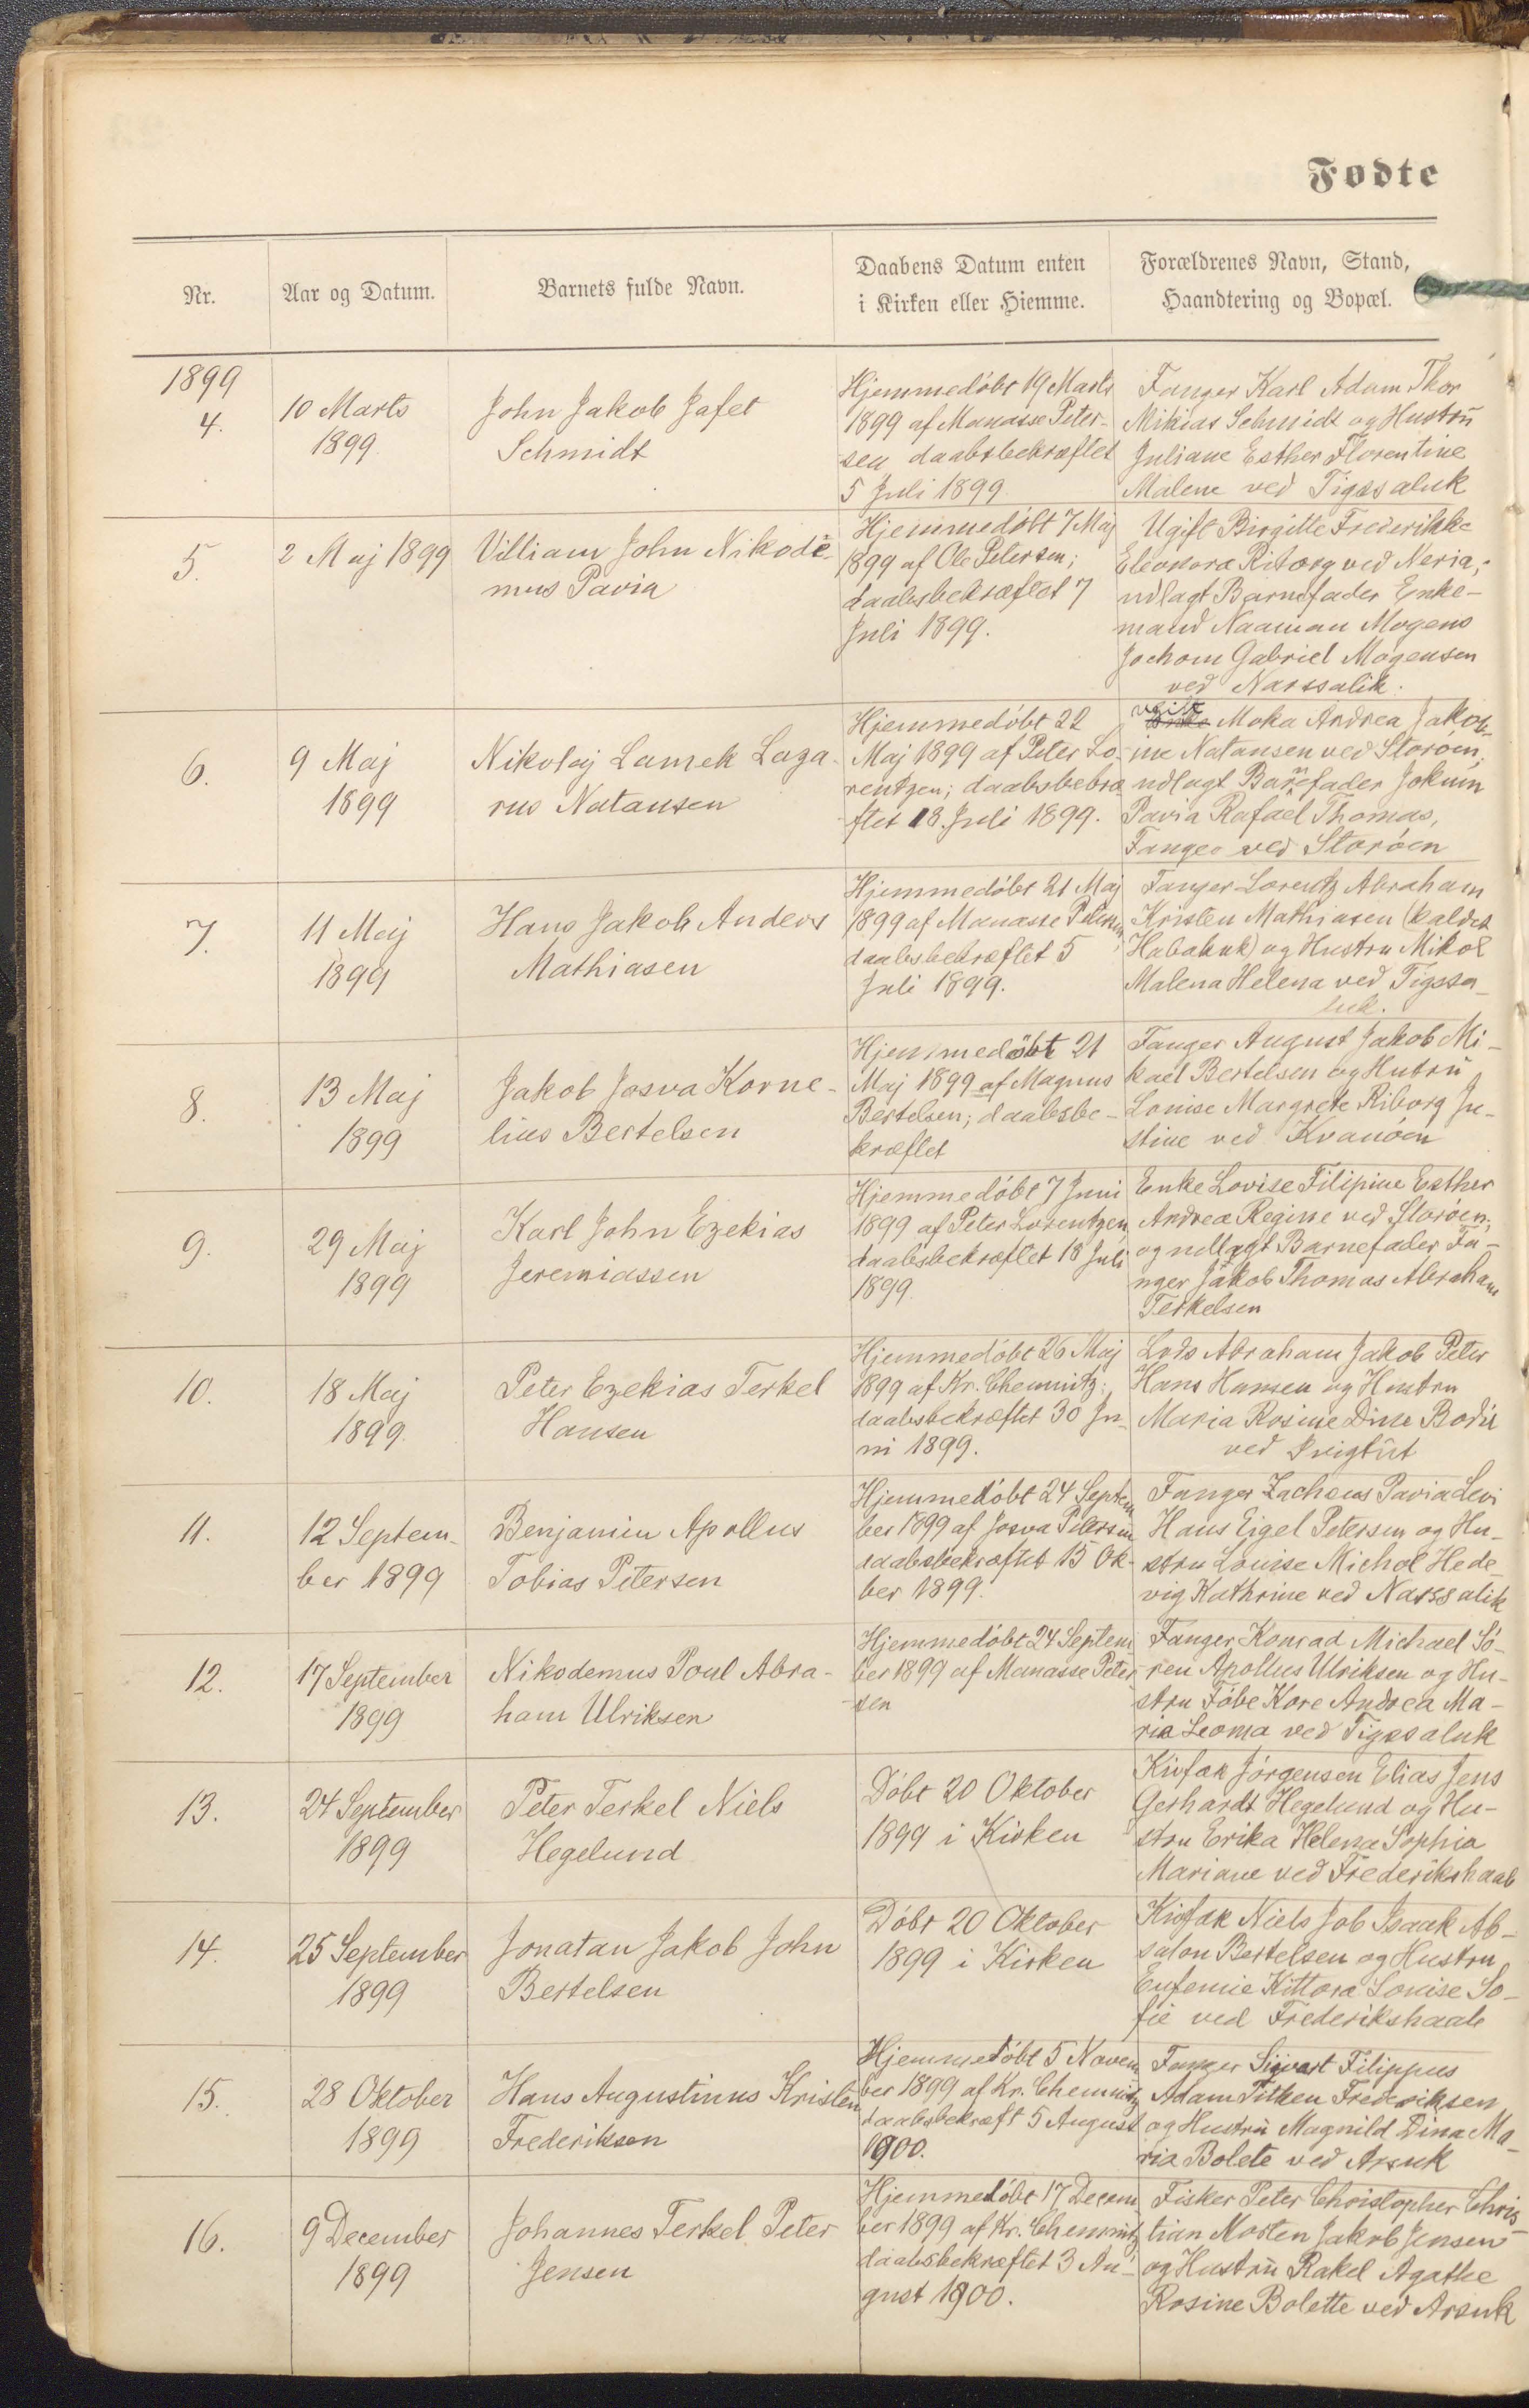 Fødte
Nr.
Aar og Datum.
Barnets fulde Navn.
Daabens Datum enten
i Kirken eller Hiemme.
Forældrenes Navn, Stand,
Haandtering og Bopæl.
1899
4.
10 Marts
1899.
John Jakob Jafet
Schmidt
Hjemmedöbt 19 Marts
1899 af Manasse Peter-
sen daabsbekræftet
5 Juli 1899
Fanger Karl Adam Thor
Mikias Schmidt og Hustrŭ
Juliane Esther Florentine
Malene ved Tigssaluk
5.
2 Maj 1899
Villiam John Nikode-
mus Pavia
Hjemmedöbt 7 Maj
1899 af Ole Petersen;
daabsbekræftet 7
Juli 1899.
Ugift Birgitte Frederikke
Eleonora Ritorg ved Neria;
udlagt Barnefader Enke-
mand Naaman Mogens
Jochom Gabriel Mogensen
ved Narssalik.
6.
9 Maj
1899
Nikolaj Lamek Laza-
rus Natansen
Hjemmedöbt 22
Maj 1899 af Peter Lo-
rentzen; daabsbekræ-
ftet 18. Juli 1899.
ugift
Enke Moka Andrea Jakob-
ine Natansen ved Storöen;
udlagt Barnefader Jokum
Pavia Rafael Thomas,
Fanger ved Storöen
7.
11 Maj
1899
Hans Jakob Anders
Mathiasen
Hjemmedöbt 21 Maj
1899 af Manasse Petersen,
daabsbekræftet 5
Juli 1899.
Fanger Lorentz Abraham
Kristen Mathiasen (kaldet
Habakuk) og Hustru Mikol
Malena Helena ved Tigssa-
luk.
8.
13 Maj
1899
Jakob Josva Korne-
lius Bertelsen
Hjemmedöbt 21
Maj 1899 af Magnus
Bertelsen; daabsbe-
kræftet
Fanger August Jakob Mi-
kael Bertelsen og Hutrŭ
Louise Margrete Riborg Ju-
stine ved Kvanöen
9.
29 Maj
1899
Karl John Ezekias
Jeremiassen
Hjemmedöbt 7 Juni
1899 af Peter Lorentzen,
daabsbekræftet 18 Juli
1899.
Enke Lovise Filipine Esther
Andrea Regine ved Storöen;
og udlagt Barnefader Fa-
nger Jakob Thomas Abraham
Terkelsen
10.
18 Maj
1899.
Peter Ezekias Terkel
Hansen
Hjemmedöbt 26 Maj
1899 af Kr. Chemnitz;
daabsbekræftet 30 Ju-
ni 1899.
Lods Abraham Jakob Peter
Hans Hansen og Hustru
Maria Rosine Dine Bodil
ved Ivigtŭt
11.
12 Septem-
ber 1899
Benjamin Apollus
Tobias Petersen
Hjemmedöbt 24 Septem
ber 1899 af Josva Petersen
daabsbekræftet 15 Ok-
ber 1899.
Fanger Zachæus Pavia Levi
Hans Eigel Petersen og Hu-
stru Louise Michol Hede-
vig Kathrine ved Narssalik
12.
17 September
1899
Nikodemus Poul Abra-
ham Ulriksen
Hjemmedöbt 24 Septem
ber 1899 af Manasse Peter-
sen
Fanger Konrad Michael Sö-
ren Apollus Ulriksen og Hu-
stru Föbe Kore Andrea Ma-
ria Leoma ved Tigssaluk
13.
24 September
1899
Peter Terkel Niels
Hegelund
Döbt 20 Oktober
1899 i Kirken
Kivfak Jörgensen Elias Jens
Gerhardt Hegelund og Hu-
stru Erika Helena Sophia
Mariane ved Frederikshaab
14.
25 September
1899
Jonatan Jakob John
Bertelsen
Döbt 20 Oktober
1899 i Kirken
Kivfak Niels Job Isaak Ab-
salon Bertelsen og Hustru
Eufemie Kittora Louise So-
fie ved Frederikshaab
15.
28 Oktober
1899
Hans Augustinus Kristen
Frederiksen
Hjemmedöbt 5 Novem
ber 1899 af Kr. Chemnitz
daabsbekræft 5 August
1900.
Fanger Sivart Filippus
Adam Titken Frederiksen
og Hustrŭ Magnild Dina Ma-
ria Bolete ved Arsuk
16.
9 December
1899
Johannes Terkel Peter
Jensen
Hjemmedöbt 17 Decem
ber 1899 af Kr. Chemnitz
daabsbekræftet 3 Au-
gust 1900.
Fisker Peter Christopher Chris-
tian Morten Jakob Jensen
og Hustrŭ Rakel Agathe
Rosine Bolette ved Arsuk